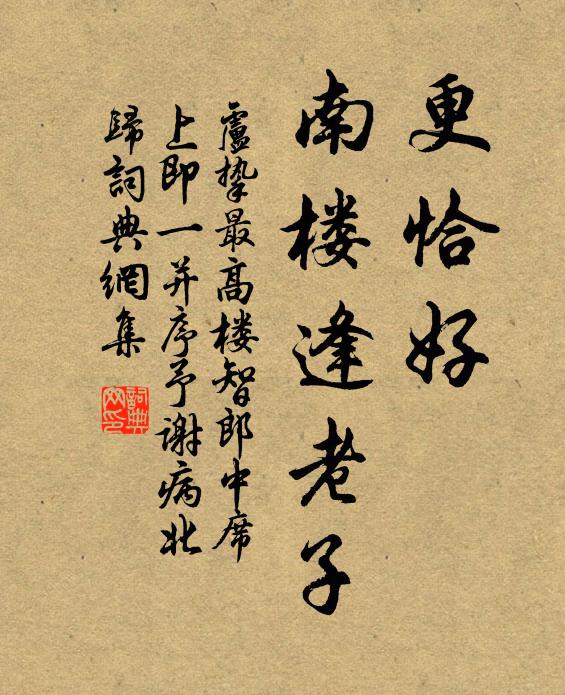 更恰好
南楼逢老子
盧摯最高楼智郎中席
上即一并序予謝病北
歸詞典網集
詞典
网印